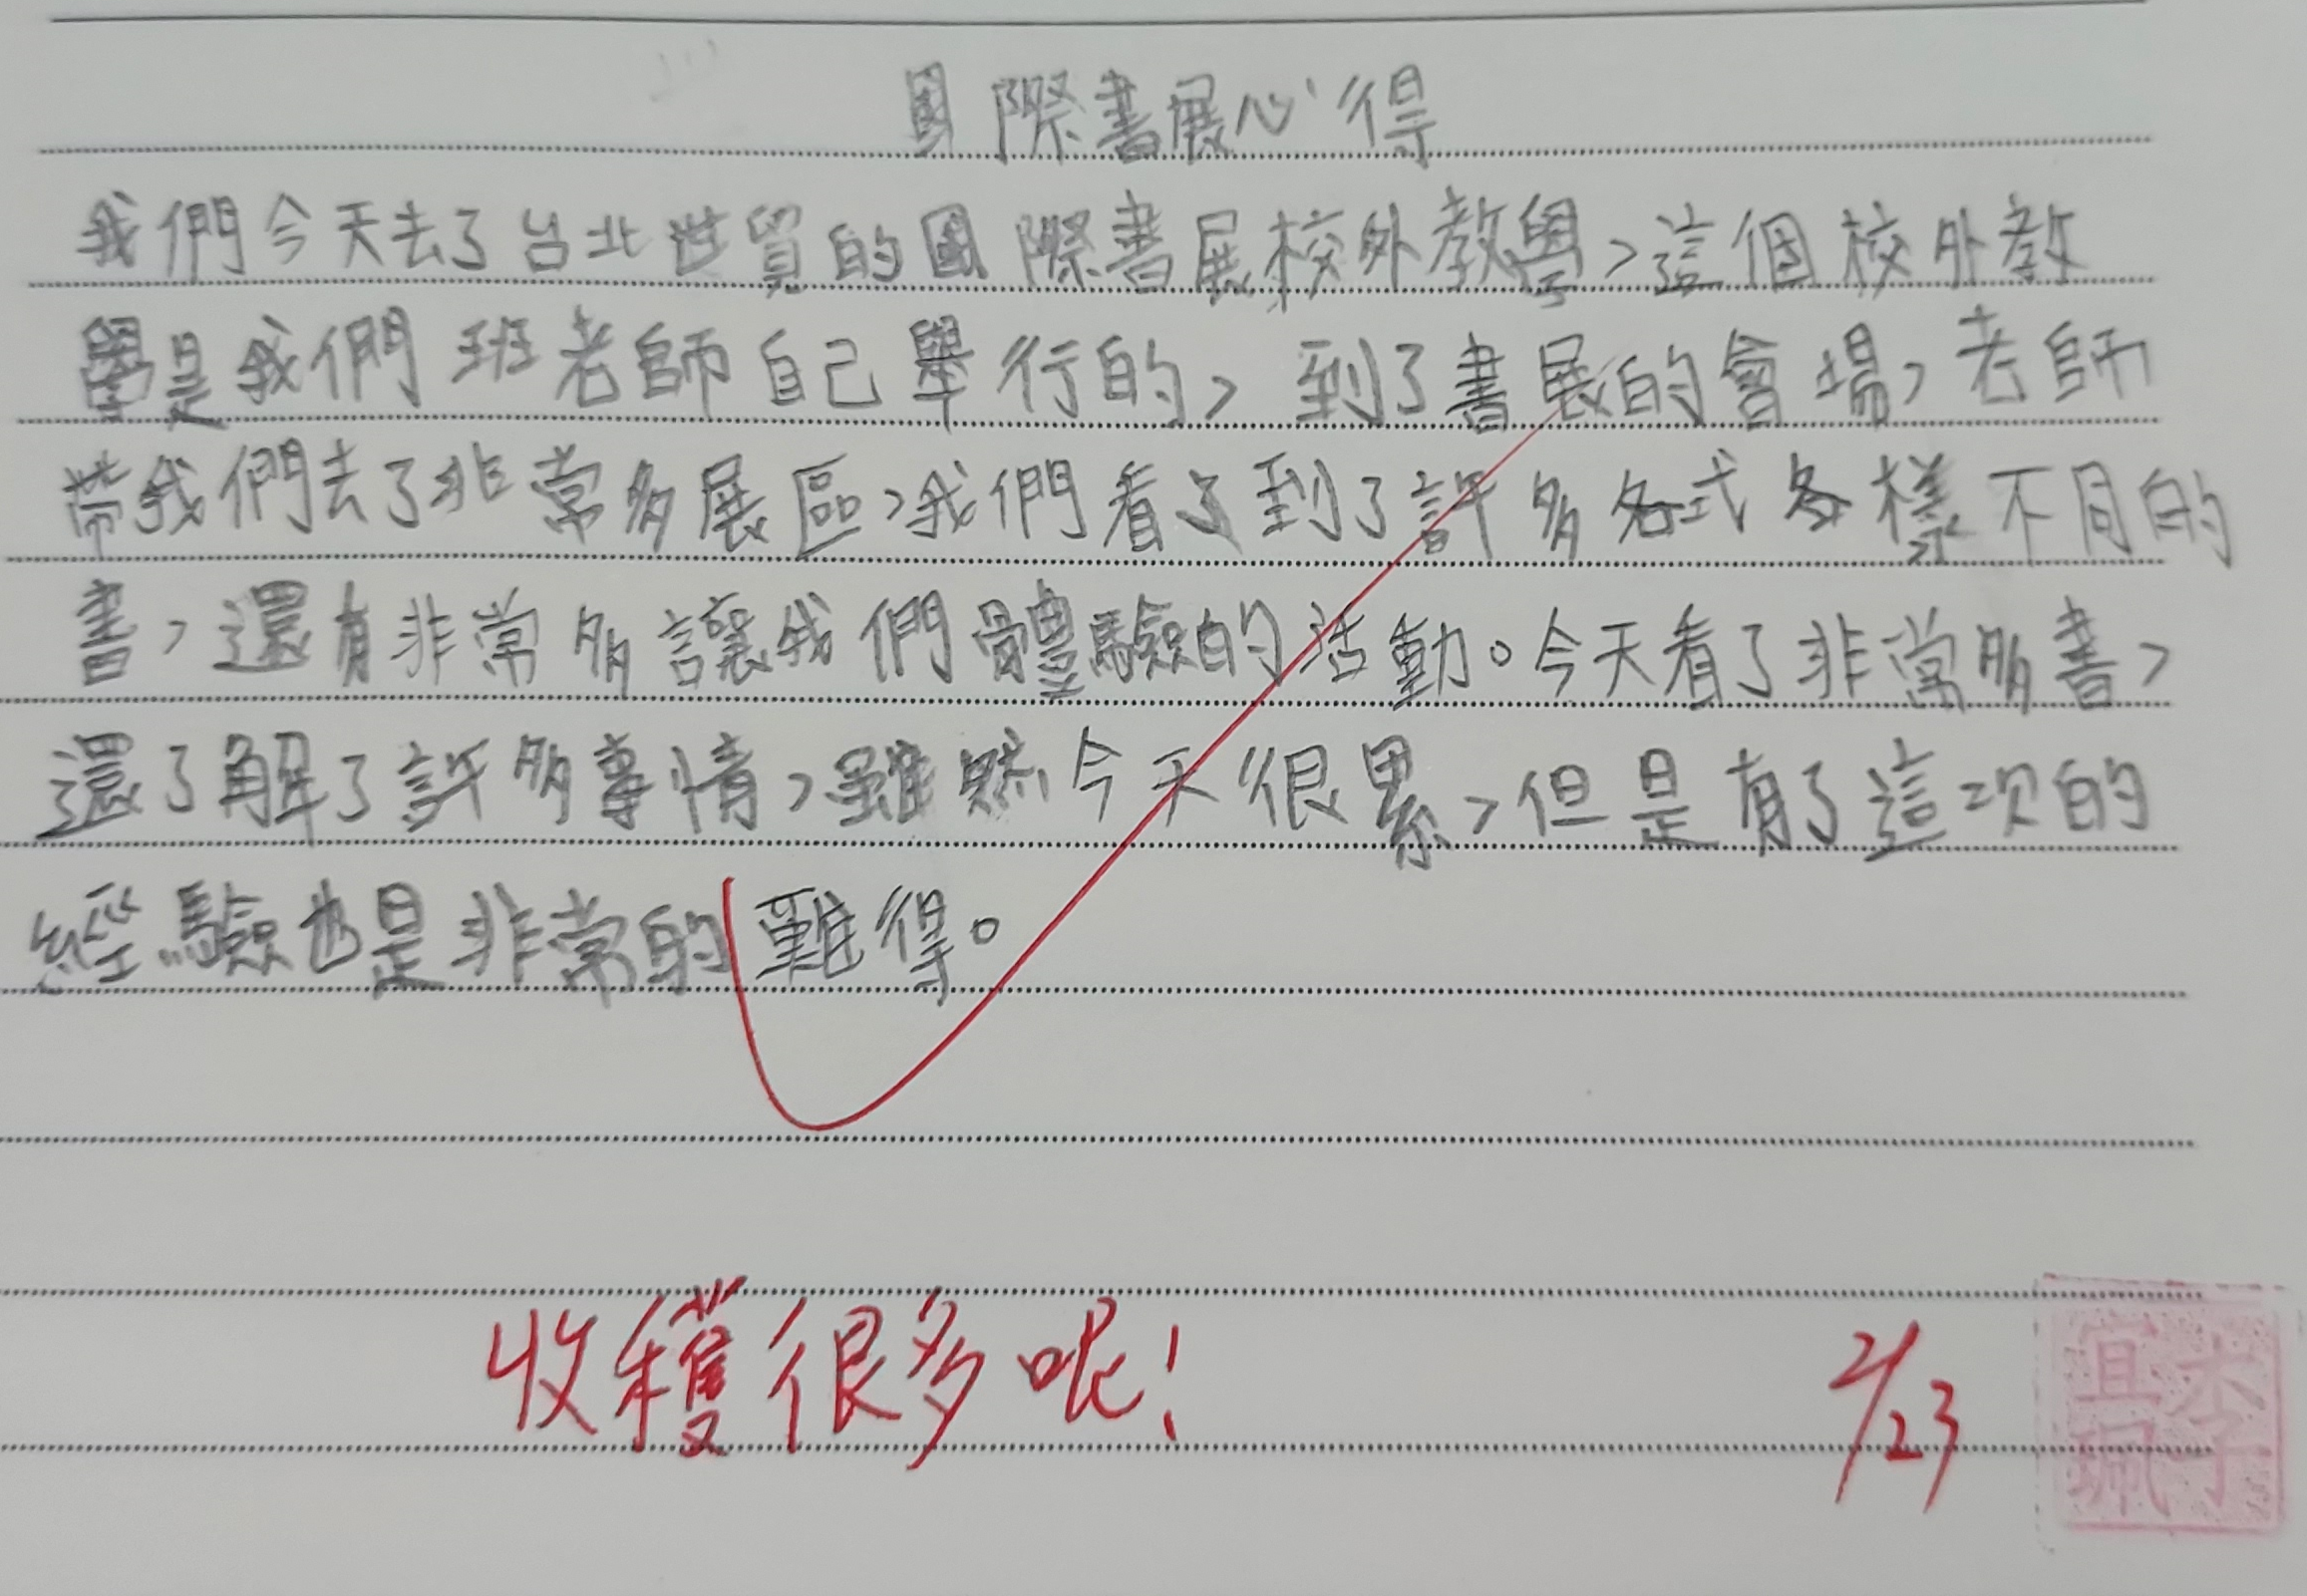 國際書展心得
我們今天去了台北世貿的國際書展校外教學，這個校外教
學是我們班老師自己舉行的，到了書展的會場，老師
帶我們去了非常多展區，我們看了到了許多各式各樣不同的
書，還有非常多讓我們體驗的活動。今天看了非常多書，
還了解了許多事情，雖然今天很累，但是有了這次的
經驗也是非常的難得。
收穫很多呢！
2/23
李宜珮